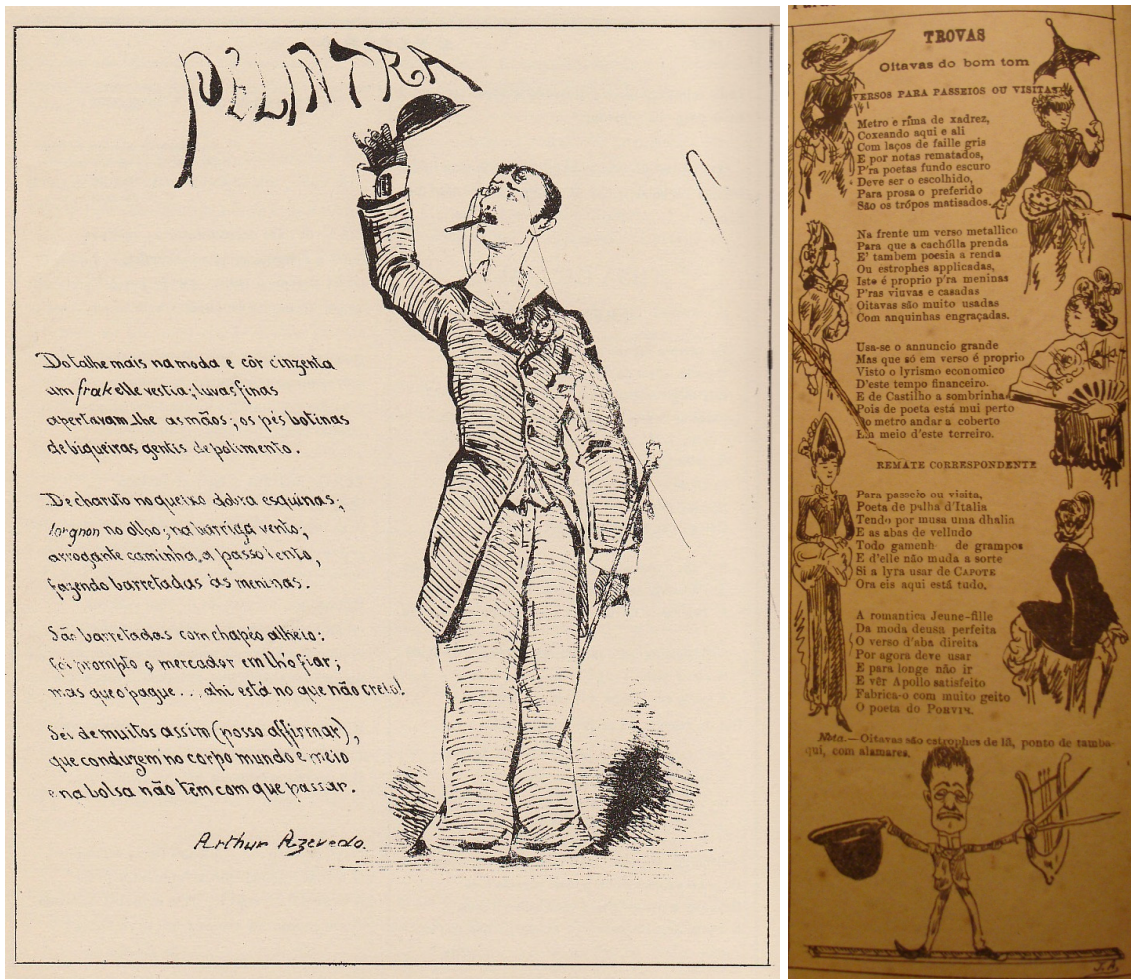 PELINTRA
Do talhe mais na moda e côr cinzenta
um frak elle vestia; luvas finas
apertavam-lhe as mãos; os pés botinas
de biqueiras gentis de polimento.
De charuto no queixo dobra esquinas;
lorgnon no olho; na barriga vento;
arrogante caminha, a passo lento,
fazendo barretadas ás meninas.
São barretadas com chapeo alheio:
foi prompto o mercador em lh'o fiar;
mas que o pague... ahi está no que não creio!
Sei de muitos assim (posso affirmar),
que conduzem no corpo mundo e meio
e na bolsa não têm com que passar.
Arthur Azevedo.
TROVAS
Oitavas do bom tom
VERSOS PARA PASSEIOS OU VISITAS
Metro e rima de xadrez,
Coxeando aqui e ali
Com laços de faille gris
E por notas rematados,
P'ra poetas fundo escuro
Deve ser o escolhido,
Para prosa o preferido
São os trópos matisados.
Na frente um verso metallico
Para que a cachólla prenda
E' tambem poesia a renda
Ou estrophes applicadas,
Isto é proprio p'ra meninas
P'ras viuvas e casadas
Oitavas são muito usadas
Com anquinhas engraçadas.
Usa-se o annuncio grande
Mas que só em verso é proprio
Visto o lyrismo economico
D'este tempo financeiro.
E de Castilho a sombrinha
Pois de poeta está mui perto
o metro andar a coberto
Em meio d'este terreiro.
REMATE CORRESPONDENTE
Para passeio ou visita,
Poeta de palha d'Italia
Tendo por musa uma dhalia
E as abas de velludo
Todo gamenh de grampos
E d'elle não muda a sorte
Si a lyra usar de CAPOTE
Ora eis aqui está tudo.
A romantica Jeune-fille
Da moda deusa perfeita
O verso d'aba direita
Por agora deve usar
E para longe não ir
E vêr Apollo satisfeito
Fabrica-o com muito geito
O poeta do PORVIR.
Nota.—Oitavas são estrophes de lã, ponto de tamba-
qui, com alamares.